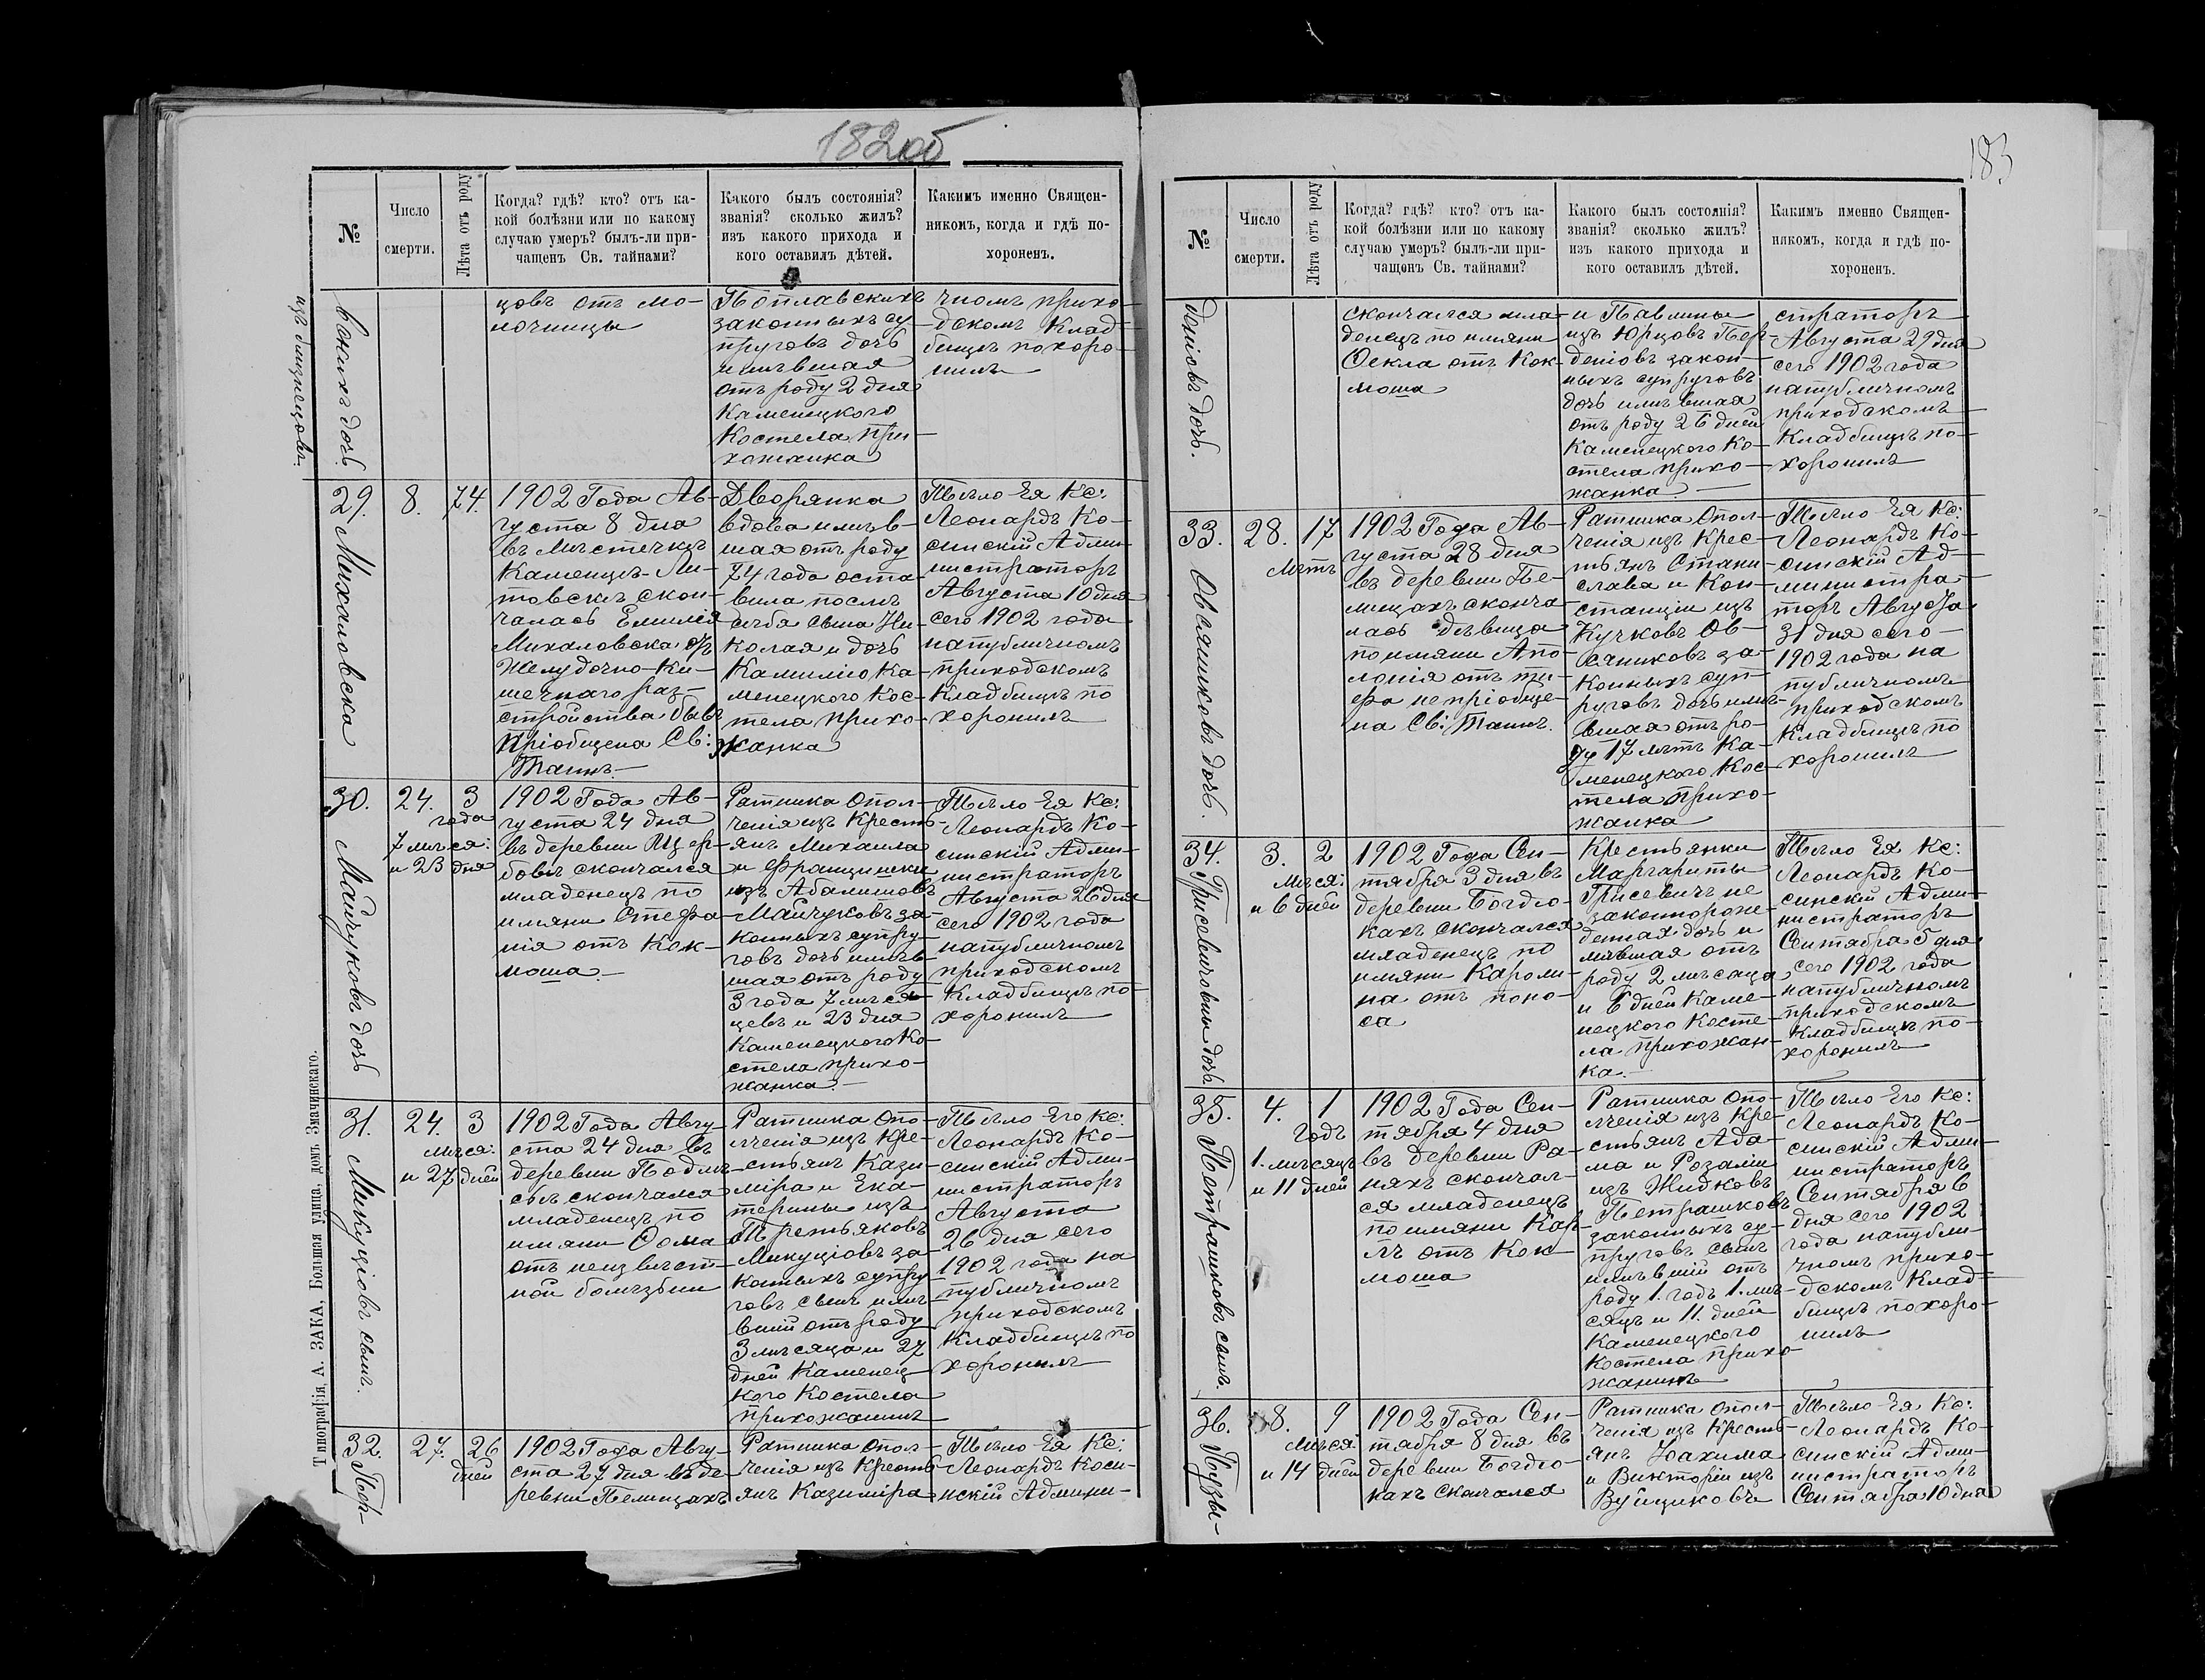 182об
№
Число
смерти.
Лѣта отъ роду
Когда? гдѣ? кто? отъ ка-
кой болѣзни или по какому
случаю умеръ? былъ-ли при-
чащенъ Св. тайнами?
Какого былъ состоянія?
званія? сколько жилъ?
изъ какого прихода и
кого оставилъ дѣтей.
Какимъ именно Священ-
никомъ, когда и гдѣ по-
хороненъ.
изъ близнецовъ.
цовъ отъ мо-
лочницы
Поплавскихъ
законныхъ су-
пруговъ дочь
имѣвшая
отъ роду 2 дня
Каменецкого
Костела При-
хожанка
чномъ прихо-
дскомъ Клад-
бищѣ похоро-
нилъ
29.
Михаловска
8.
74.
1902 Года Ав-
густа 8 дня
въ Мѣстечкѣ
Каменцѣ-Ли-
товскѣ скон-
чалась Емилія
Михаловска отъ
Желудочно-Ки-
шечнаго раз-
стройства бывъ
Пріобщена Св:
Таинъ.
Дворянка
вдова имѣв-
шая отъ роду
74 года оста-
вила послѣ
себя сына Ни-
колая и дочь
Камилію Ка-
менецкого Кос-
тела прихо-
жанка
Тѣло Ея Кс:
Леонардъ Ко-
синскій Адми-
нистраторъ
Августа 10 дня
сего 1902 года
на публичномъ
приходскомъ
Кладбищѣ по
хоронилъ
30.
Майчуковъ дочь
24.
3
года
7 мѣся:
и 23 дня
1902 Года Ав-
густа 24 дня
въ деревни Щер-
бовѣ скончался
младенецъ по
имяни Стефа-
нія отъ Кок-
люша
Ратника Опол-
ченія изъ Кресть-
янъ Михаила
и Францишки
изъ Абалишовъ
Майчуковъ за-
конныхъ супру-
говъ дочь имѣв-
шая отъ роду
3 года 7 мѣся-
цевъ и 23 дня
Каменецкого Ко-
стела прихо-
жанка.
Тѣло Ея Кс:
Леонардъ Ко-
синскій Адми-
нистраторъ
Августа 26 дня
сего 1902 года
на публичномъ
приходскомъ
Кладбищѣ по-
хоронилъ
31.
Микуціовъ сынъ.
24.
3
мѣся:
и 27 дней
1902 Года Авгу-
ста 24 дня въ
деревни Подлѣ-
сьѣ скончался
младенецъ по
имяни Ѳома
отъ неизвѣст-
ной болѣзьни
Ратника Опо-
лченія изъ Кре-
стьянъ Кази-
міра и Ека-
терины изъ
Третьяковъ
Микуціовъ за-
конныхъ супру-
говъ сынъ имѣ-
вшій отъ роду
3 мѣсяца и 27
дней Каменец-
кого Костела
прихожанинъ
Тѣло Его Кс:
Леонардъ Ко-
синскій Адми-
нистраторъ
Августа
26 дня сего
1902 года на
публичномъ
приходскомъ
Кладбищѣ по
хоронилъ
32.
27.
26
дней
1902 Года Авгу-
ста 27 дня въ де-
ревни Пелищахъ
Ратника Опол-
ченія изъ Кресть-
янъ Казиміра
Тѣло Ея Кс:
Леонардъ Коси-
нскій Админи-
Типографія, А. ЗАКА, Большая улица, домъ Змачинскаго.
183
№
Число
смерти.
Лѣта отъ роду
Когда? гдѣ? кто? отъ ка-
кой болѣзни или по какому
случаю умеръ? былъ-ли при-
чащенъ Св. тайнами?
Какого былъ состоянія?
званія? сколько жилъ?
изъ какого прихода и
кого оставилъ дѣтей.
Какимъ именно Священ-
никомъ, когда и гдѣ по-
хороненъ.
деніовъ дочь.
скончался мла-
денецъ по имяни
Ѳекла отъ Кок-
люша
и Павлины
изъ Юрцовъ Пер-
деніовъ закон-
ныхъ супруговъ
дочь имѣвшая
отъ роду 26 дней
Каменецкого Ко-
стела прихо-
жанка.
страторъ
Августа 29 дня
сего 1902 года
на публичномъ
приходскомъ
Кладбищѣ по-
хоронилъ
33.
Овсяниковъ дочь.
28.
17
лѣтъ
1902 Года Ав-
густа 28 дня
въ деревни Пе-
лищахъ сконча
лась дѣвица
по имяни Апо-
лонія отъ ти-
фа непріобще-
на Св: Таинъ.
Ратника Опол-
ченія изъ Крес-
тьянъ Стани-
слава и Кон-
станціи изъ
Кучковъ Ов-
сяниковъ за-
конныхъ суп-
руговъ дочь имѣ-
вшая отъ ро-
ду 17 лѣтъ Ка-
менецкого Кос-
тела прихо-
жанка
Тѣло Ея Кс:
Леонардъ Ко-
синскій Ад-
министра-
торъ Августа
31 дня сего
1902 года на
публичномъ
приходскомъ
Кладбищѣ по
хоронилъ
34.
Грисевичовны дочь.
3.
2
мѣся:
и 6 дней
1902 Года Сен-
тября 3 дня въ
деревни Богдю-
кахъ скончался
младенецъ по
имяни Кароли-
на отъ поно-
са
Крестьянки
Маргариты
Грисевичъ не
законнорож-
денная дочь и
мѣвшая отъ
роду 2 мѣсаца
и 6 дней Каме-
нецкого Косте-
ла прихожан-
ка.
Тѣло Ея Кс:
Леонардъ Ко-
синскій Адми-
нистраторъ
Сентября 5 дня
сего 1902 года
на публичномъ
приходскомъ
Кладбищѣ по-
хоронилъ
35.
Петрашковъ сынъ.
4.
1
годъ
1. мѣсяцъ
и 11 дней
1902 Года Сен-
тября 4 дня
въ деревни Ра-
няхъ скончал-
ся младенецъ
по имяни Кар-
лъ отъ Кок-
люша
Ратника Опо-
лченія изъ Кре-
стьянъ Ада-
ма и Розаліи
изъ Жидковъ
Петрашковъ
законныхъ су-
пруговъ сынъ
имѣвшій отъ
роду 1. годъ 1. мѣ-
сяцъ и 11. дней
Каменецкого
Костела прихо
жанинъ
Тѣло Его Кс:
Леонардъ Ко-
синскій Адми-
нистраторъ
Сентября 6
дня сего 1902
года на публи-
чномъ прихо-
дскомъ Клад-
бищѣ похоро-
нилъ
36.
8.
9
мѣся
и 14 дней
1902 Года Сен-
тября 8 дня въ
деревни Богдю-
кахъ скончался
Ратника Опол-
ченія изъ Кресть-
янъ Іоахима
и Викторіи изъ
Вуйциковъ
Тѣло Ея Кс:
Леонардъ Ко-
синскій Адми-
нистраторъ
Сентября 10 дня